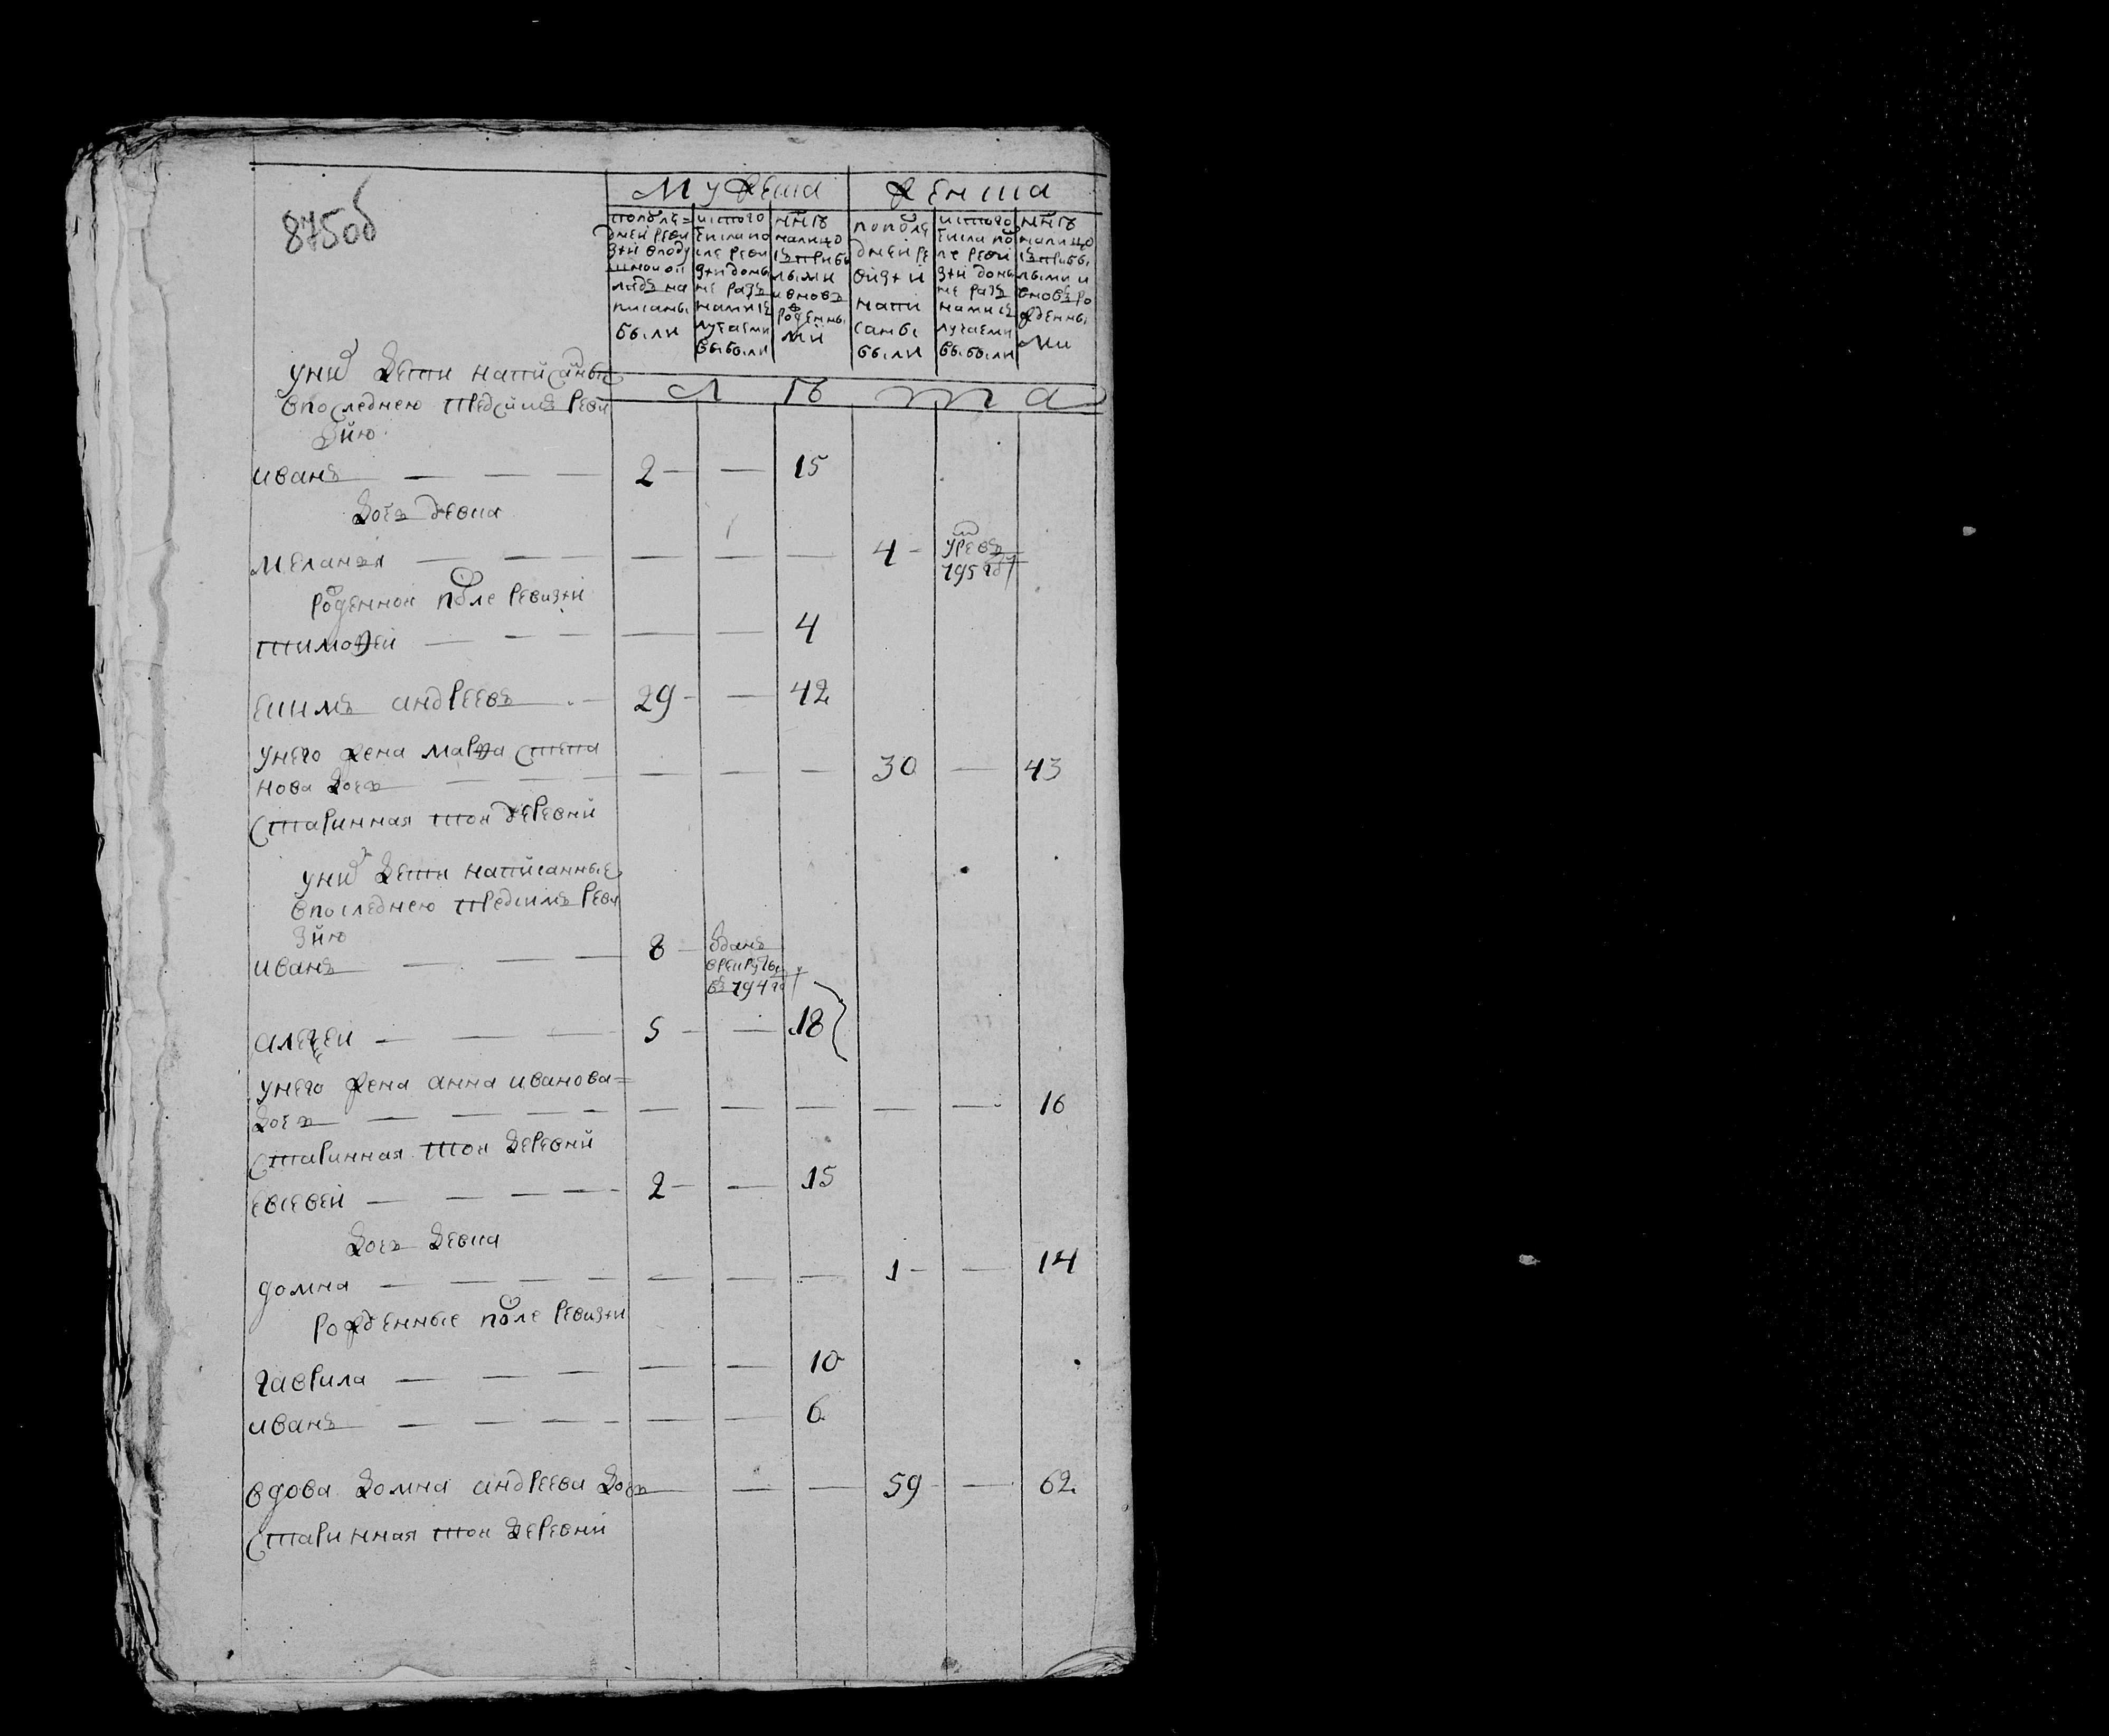 875об
Мужеска
Женска
по последней ревизи и в подушной окладъ написаны были
ис того числа после ревизи и до ныне разными случаями выбыли
ныне на лицо с прибылыми и вновь рожденными
по последней ревизи и написаны были
ис того числа после ревизи и до ныне разными случаями выбыли
ныне на лицо с прибылыми и вновь рожденными
лѣта
у них дети написаные
в последнею пред сим реви
зию
иванъ — — — 2 — 15
дочь девка
меланья — — — — — — 4 — 795 году
рожденной после ревизии
тимофей — — — — — 4
еким андреевъ — 29 — 42
у него жена марфа степа
нова дочь — — — — — — 30 — 43
старинная той деревни
у них дети написанные
в последнею пред симъ реви
зию
иванъ — — — 8 — отданъ в рекруты въ 794 году
алексей — — — 5 — 18
у него жена анна иванова
дочь — — — — — — — — — 16
старинная той деревни
евсевей — — — — 2 — 15
дочь девка
домна — — — — — — — 1 — — 14
рожденные после ревизии
гаврила — — — — — 10
иванъ — — — — — — 6
вдова домна андреева дочь — — — 59 — 62
старинная той деревни